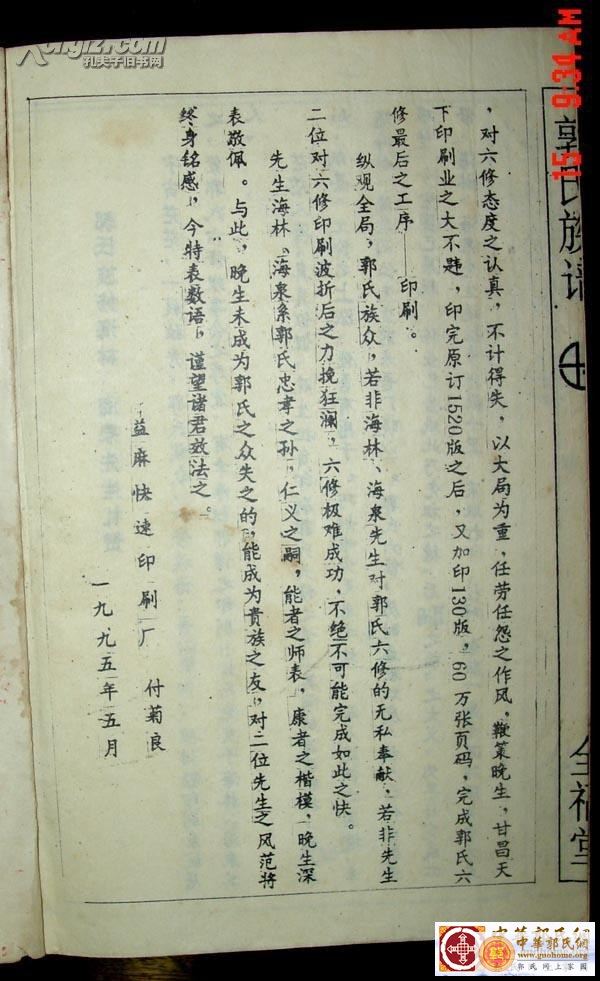 郭氏族谱
全福堂
，对六修态度之认真，不计得失，以大局为重，任劳任怨之作风，鞭策晚生，甘昌天
下印刷业之大不韪，印完原订1520版之后，又加印130版，60万张页码，完成郭氏六
修最后之工序——印刷。
纵观全局，郭氏族众，若非海林、海泉先生对郭氏六修的无私奉献，若非先生
二位对六修印刷波折后之力挽狂澜，六修极难成功，不绝不可能完成如此之快。
先生海林、海泉系郭氏忠孝之孙，仁义之嗣，能者之师表，康者之楷模，晚生深
表敬佩。与此，晚生未成为郭氏之众失之的，能成为贵族之友，对二位先生之风范将
终身铭感，今特表数语，谨望诸君效法之。
益麻快速印刷厂 付菊良
一九九五年五月
孔夫子旧书网
15 9:34 AM
中华郭氏网
中華郭氏網
www.guohome.org
郭氏网上家园